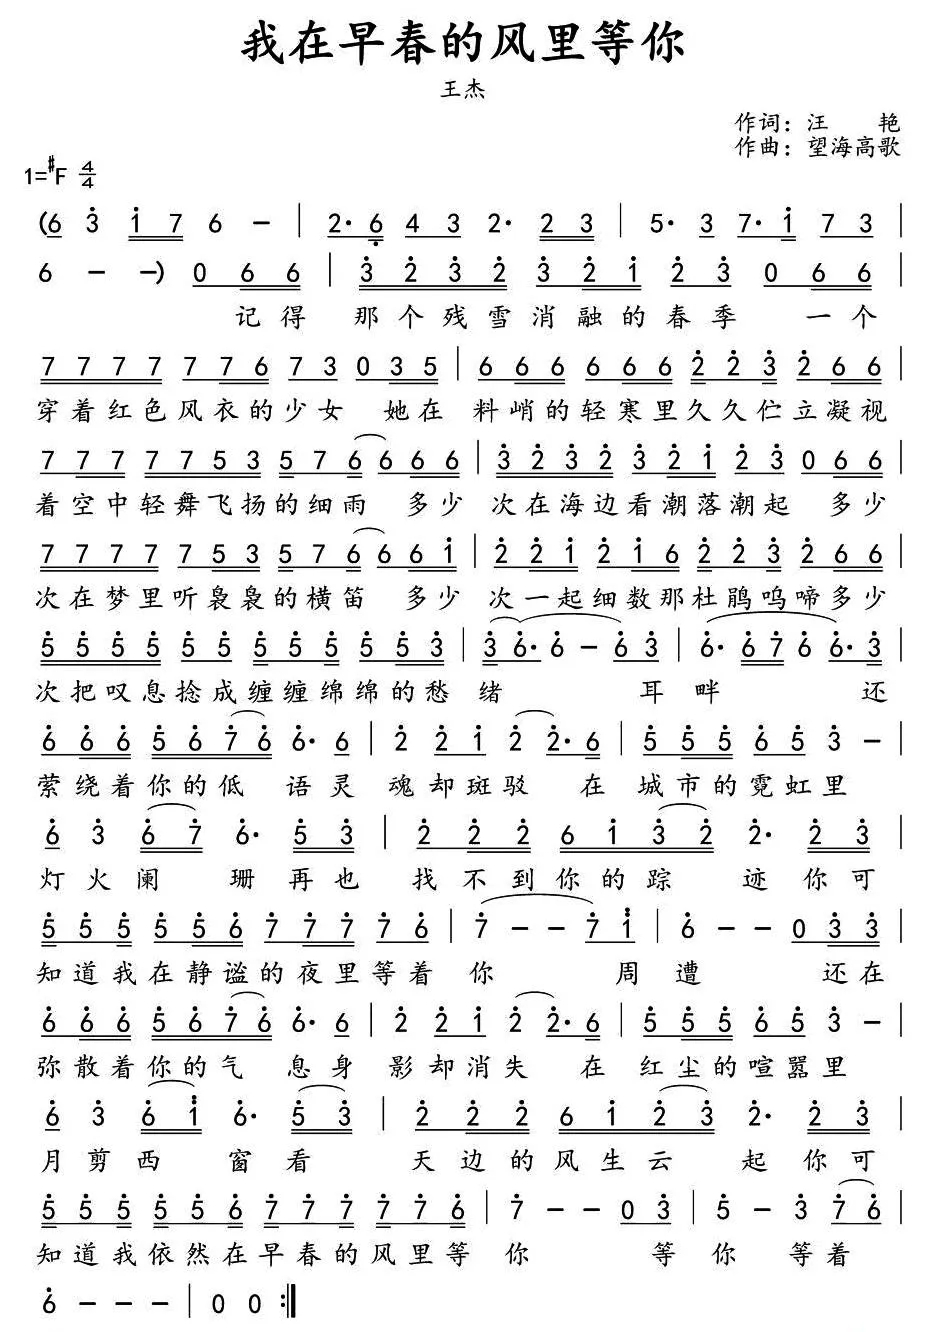 我在早春的风里等你
王杰
作词：汪 艳
作曲：望海高歌
1=#F 4/4
(6 3 1 7 6 - | 2· 6 4 3 2· 2 3 | 5· 3 7· 1 7 3 |
6 - -) 0 6 6 | 3 2 3 2 3 2 1 2 3 0 6 6 |
记得 那个残雪消融的春季 一个
7 7 7 7 7 7 6 7 3 0 3 5 | 6 6 6 6 6 6 2 2 3 2 6 6 |
穿着红色风衣的少女 她在 料峭的轻寒里久久伫立凝视
7 7 7 7 7 5 3 5 7 6 6 6 6 | 3 2 3 2 3 2 1 2 3 0 6 6 |
着空中轻舞飞扬的细雨 多少 次在海边看潮落潮起 多少
7 7 7 7 7 5 3 5 7 6 6 6 1 | 2 2 1 2 1 6 2 2 3 2 6 6 |
次在梦里听袅袅的横笛 多少 次一起细数那杜鹃呜啼多少
5 5 5 5 5 5 5 5 5 5 5 3 | 3 6· 6 - 6 3 | 6· 6 7 6 6· 3 |
次把叹息捻成缠缠绵绵的愁 绪 耳畔 还
6 6 6 5 6 7 6 6· 6 | 2 2 1 2 2· 6 | 5 5 5 6 5 3 - |
萦绕着你的低 语灵 魂却斑驳 在 城市的霓虹里
6 3 6 7 6· 5 3 | 2 2 2 6 1 3 2 2· 2 3 |
灯火阑 珊再也 找不到你的踪 迹你可
5 5 5 5 5 6 7 7 7 7 6 | 7 - - 7 1 | 6 - - 0 3 3 |
知道我在静谧的夜里等着 你 周遭 还在
6 6 6 5 6 7 6 6· 6 | 2 2 1 2 2· 6 | 5 5 5 6 5 3 - |
弥散着你的气 息身 影却消失 在 红尘的喧嚣里
6 3 6 1 6· 5 3 | 2 2 2 6 1 2 3 2· 2 3 |
月剪西 窗看 天边的风生云 起你可
5 5 5 5 5 6 7 7 7 7 7 6 | 7 - - 0 3 | 5 - 3 7 6 |
知道我依然在早春的风里等 你 等 你 等着
6 - - - | 0 0 :‖